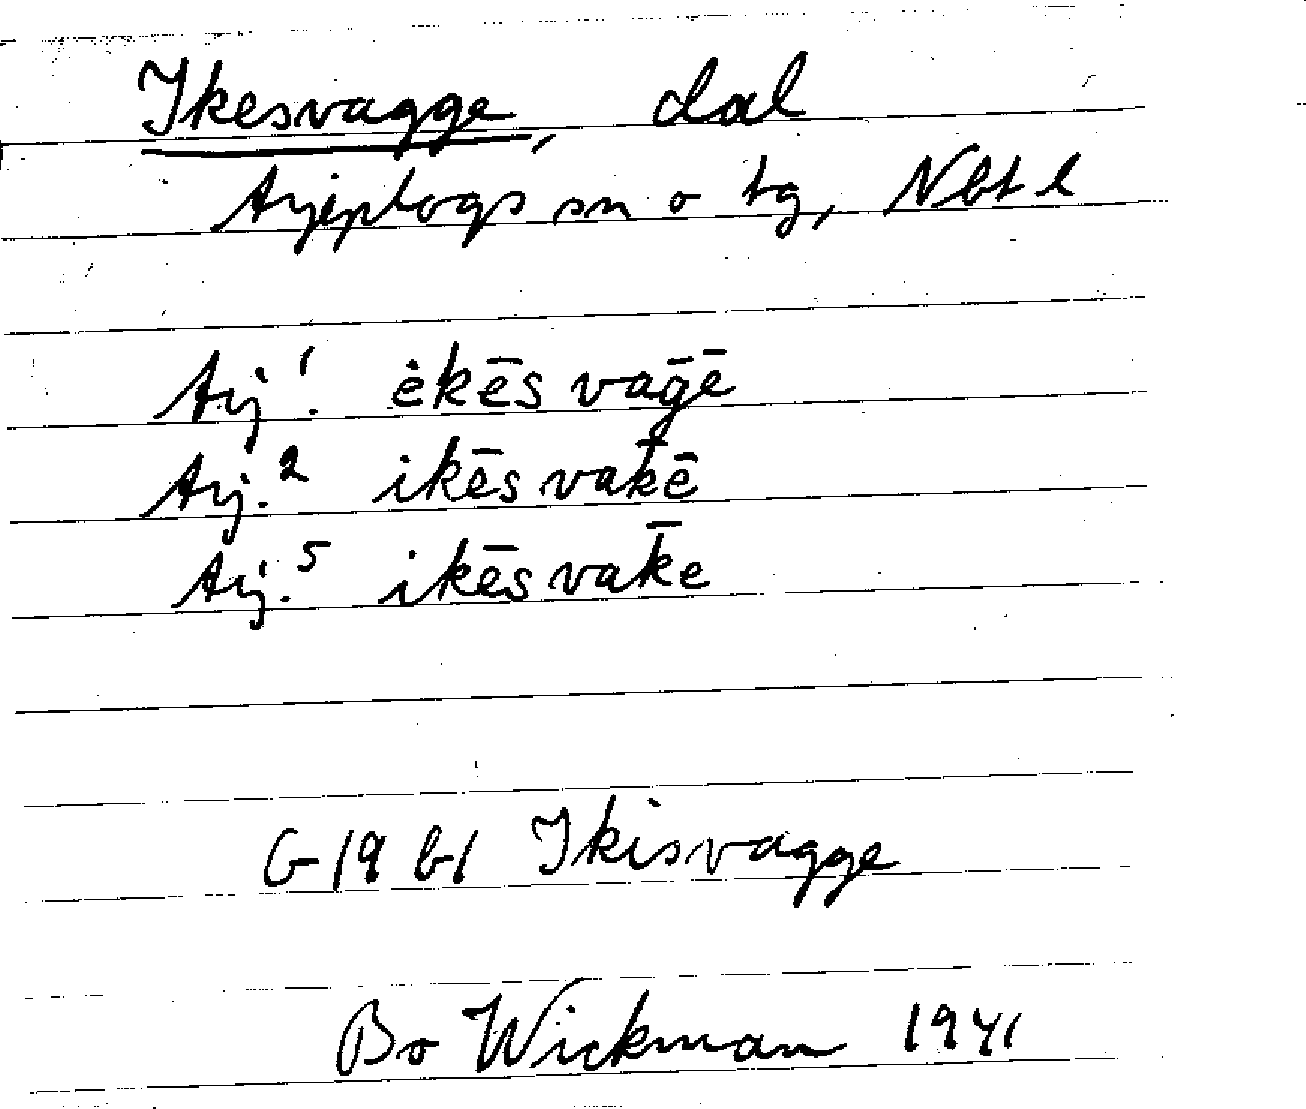 Ikesvagge, dal
Arjeplogs sn o tg, Nbt l
Arj.¹ ėkēs vaḡē
Arj.² ikēs vak̄ē
Arj.⁵ ikēs vak̄e
G 19 b1 Ikisvagge
Bo Wickman 1941